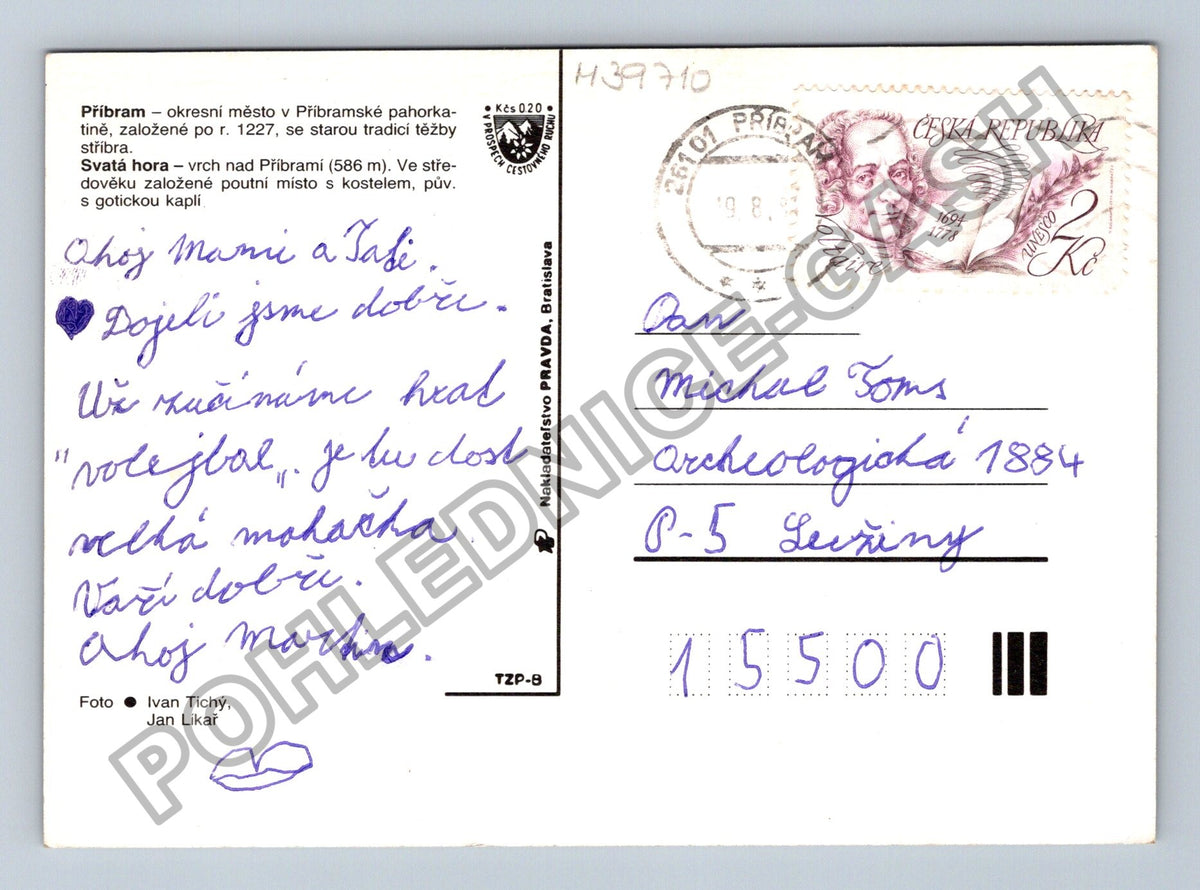 H39710
Příbram – okresní město v Příbramské pahorka-
tině, založené po r. 1227, se starou tradicí těžby
stříbra.
Svatá hora – vrch nad Příbramí (586 m). Ve stře-
dověku založené poutní místo s kostelem, pův.
s gotickou kaplí
• Kčs 0.20 •
V PROSPĚCH CESTOVNÉHO RUCHU
Ahoj Mami a Tati.
Dojeli jsme dobře.
Už začínáme hrat
"volejbal„. je tu dost
velká mohačka
Vaří dobře.
Ahoj Martin.
Foto ● Ivan Tichý,
Jan Likař
TZP-8
Nakladateľstvo PRAVDA, Bratislava
261 01 PŘÍBRAM
19.8.
ČESKÁ REPUBLIKA
Voltaire
1694
1778
UNESCO
2 Kč
Pan
Michal Toms
Archeologická 1884
P-5 Lužiny
15500
POHLEDNICE-GASH